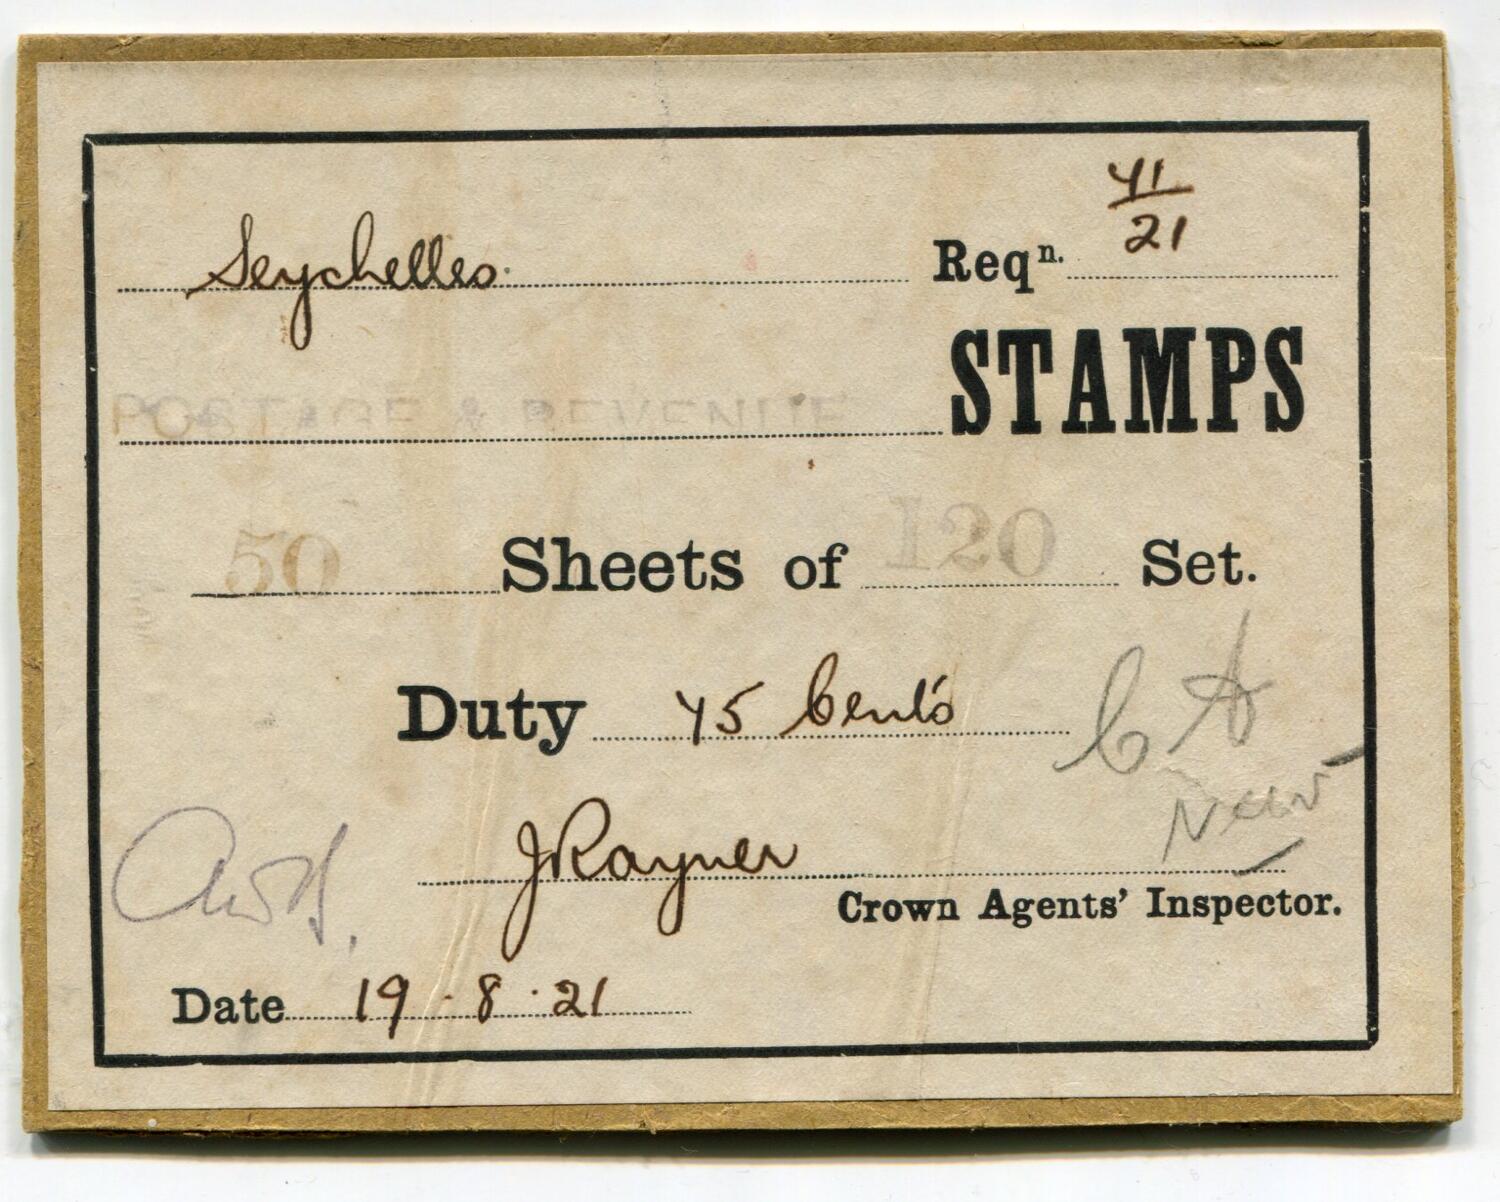 Seychelles. Reqn. 41/21
POSTAGE & REVENUE STAMPS
50 Sheets of 120 Set.
Duty 45 Cents
C A
New
J Rayner
Crown Agents' Inspector.
Date 19 . 8 . 21